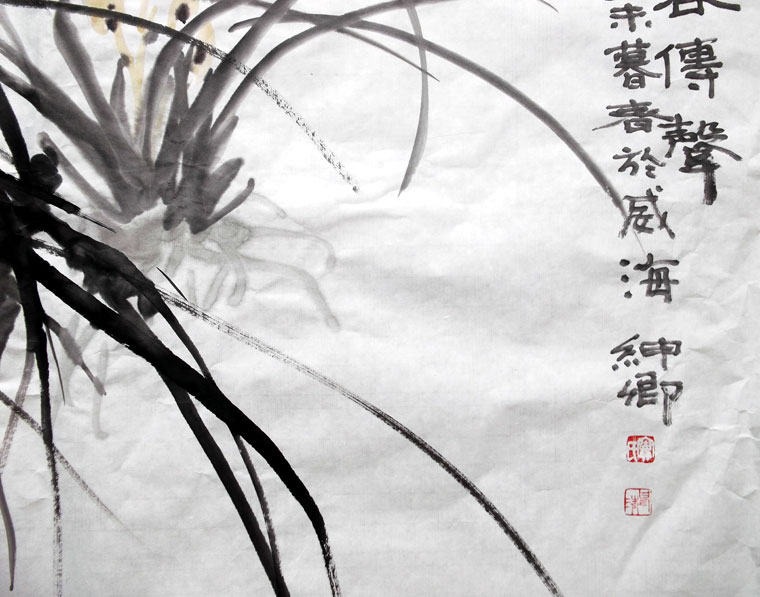 谷傳聲
未暮春於威海
紳卿